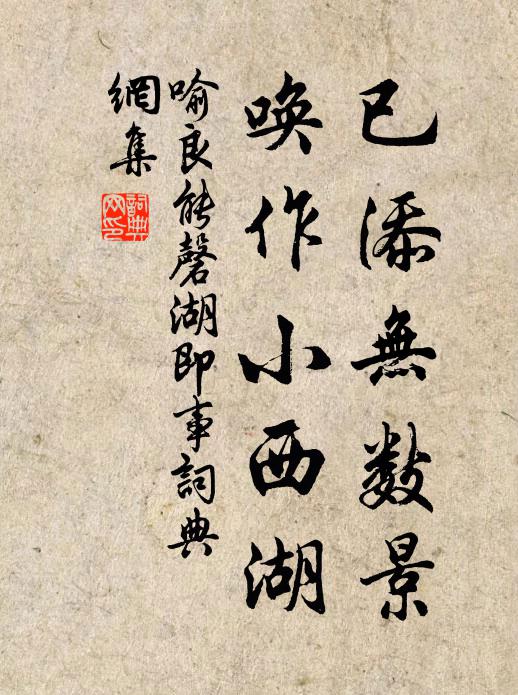 已添無數景
喚作小西湖
喻良能磬湖即事詞典
網集
詞典
网印